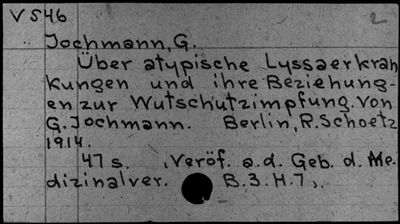 V 546 2
Jochmann, G.
Über atypische Lyssaerkran
kungen und ihre Beziehung-
en zur Wutschutzimpfung. Von
G. Jochmann. Berlin, R. Schoetz
1914.
47 s. (Veröf. a.d. Geb. d. Me-
dizinalver. B.3.H.7).